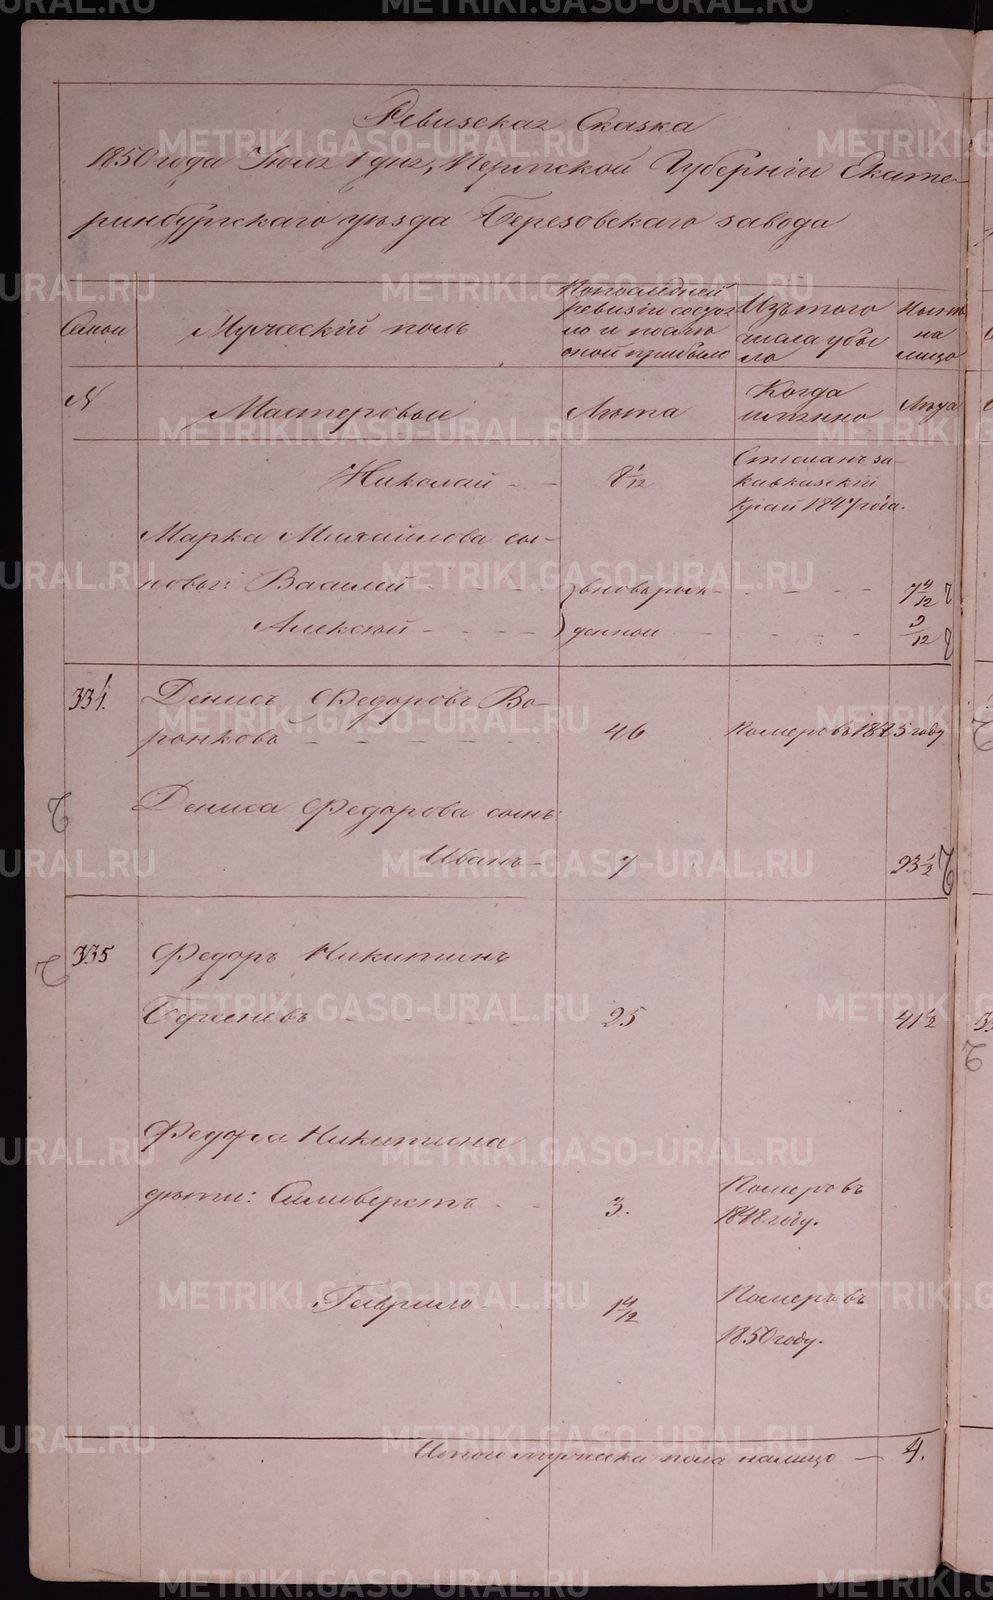 Ревизская Сказка
1850 года Июля 1 дня, Пермской Губерніи Екате-
ринбургскаго уѣзда Березовскаго завода
Семьи
Мужескій полъ
По последней
ревизіи состоя
ло и после
оной прибыло
Изъ того
числа убы
ло
Ныне
на
лицо
№
Мастеровые
Лѣта
Когда
именно
Лѣта
Николай
8 1/12
Отосланъ за-
кавказскій
край 1847 года.
Марка Михайлова сы-
новья: Василей
вновь рож-
7 4/12
Алексѣй
денные
9/12
334.
Денисъ Федоровъ Во-
ронковъ
46
Померъ въ 1845 году
Дениса Федорова сынъ
Иванъ
7
23 1/2
335
Федоръ Никитинъ
25
41 1/2
Федора Никитина
дѣти: Силиверстъ
3.
Померъ въ
1848 году.
Гаврило
1 4/12
Померъ въ
1850 году.
Итого мужеска пола налицо
4.
METRIKI.GASO-URAL.RU